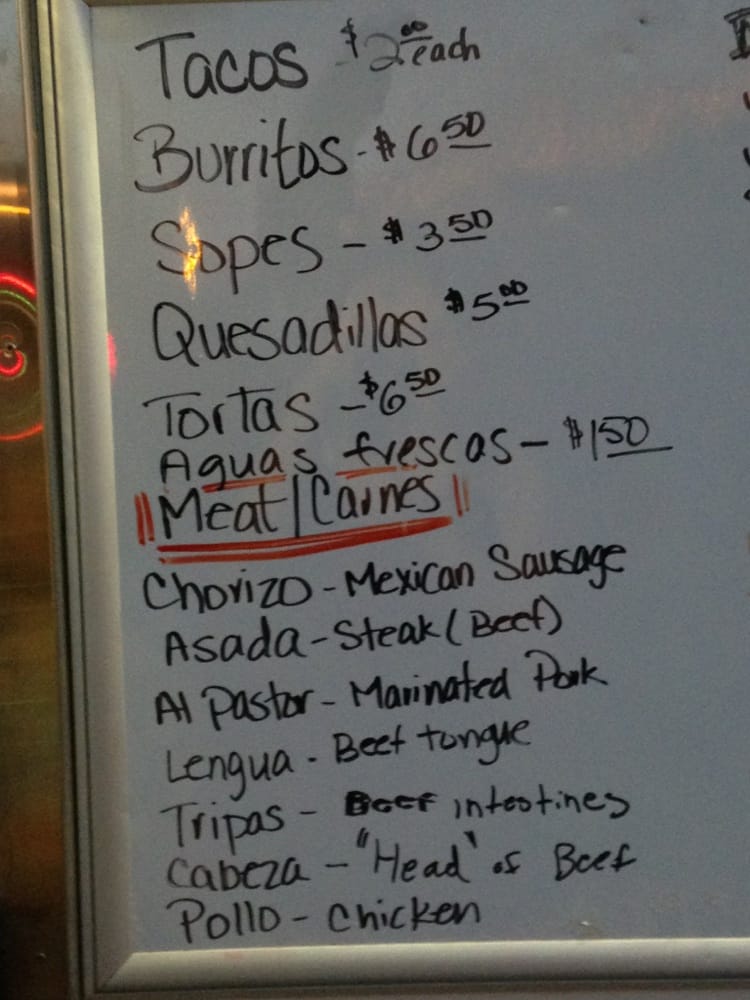 Tacos $2.00 each
Burritos - $6.50
Sopes - $3.50
Quesadillas $5.00
Tortas - $6.50
Aguas frescas - $1.50
Meat/Carnes
Chorizo - Mexican Sausage
Asada - Steak (Beef)
Al Pastor - Marinated Pork
Lengua - Beef tongue
Tripas - Beef intestines
Cabeza - "Head" of Beef
Pollo - Chicken